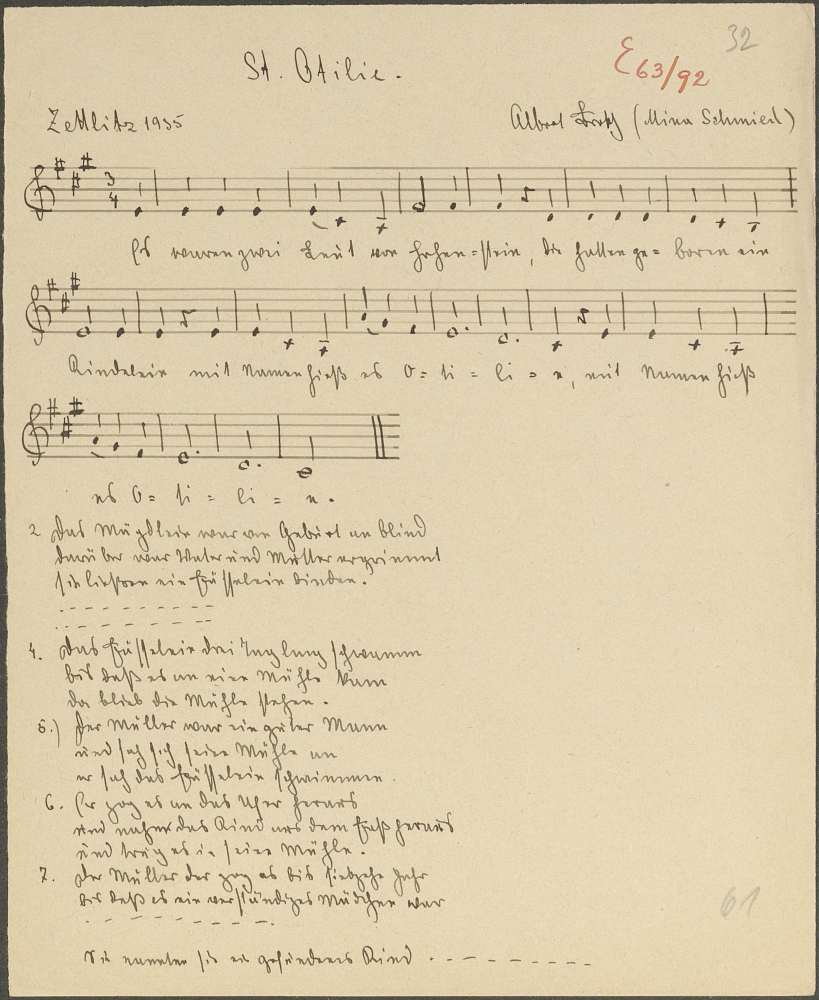 32
E 63/92
St. Otilie.
Zettlitz 1935
Albert (Mina Schmied)
3
4
Es waren zwei Leut von Hohen=stein, die hatten ge= boren ein
Kindelein mit Namen hieß es O= ti = li = e, mit Namen hieß
es O= ti = li = e.
2 Das Mägdlein war von Geburt an blind
darüber war Vater und Mutter ergrimmt
sie ließen ein Fässelein binden.
4. Das Fässelein drei Tag lang schwamm
bis daß es an eine Mühle kam
da blieb die Mühle stehen.
5.) Der Müller war ein guter Mann
und sah sich seine Mühle an
er sah das Fässelein schwimmen.
6. Er zog es an das Ufer heraus
und nahm das Kind aus dem Faß heraus
und trug es in seine Mühle.
7. Der Müller der zog es bis siebzehn Jahr
bis daß es ein verständiges Mädchen war
Sie nannten sie ein gefundenes Kind
61